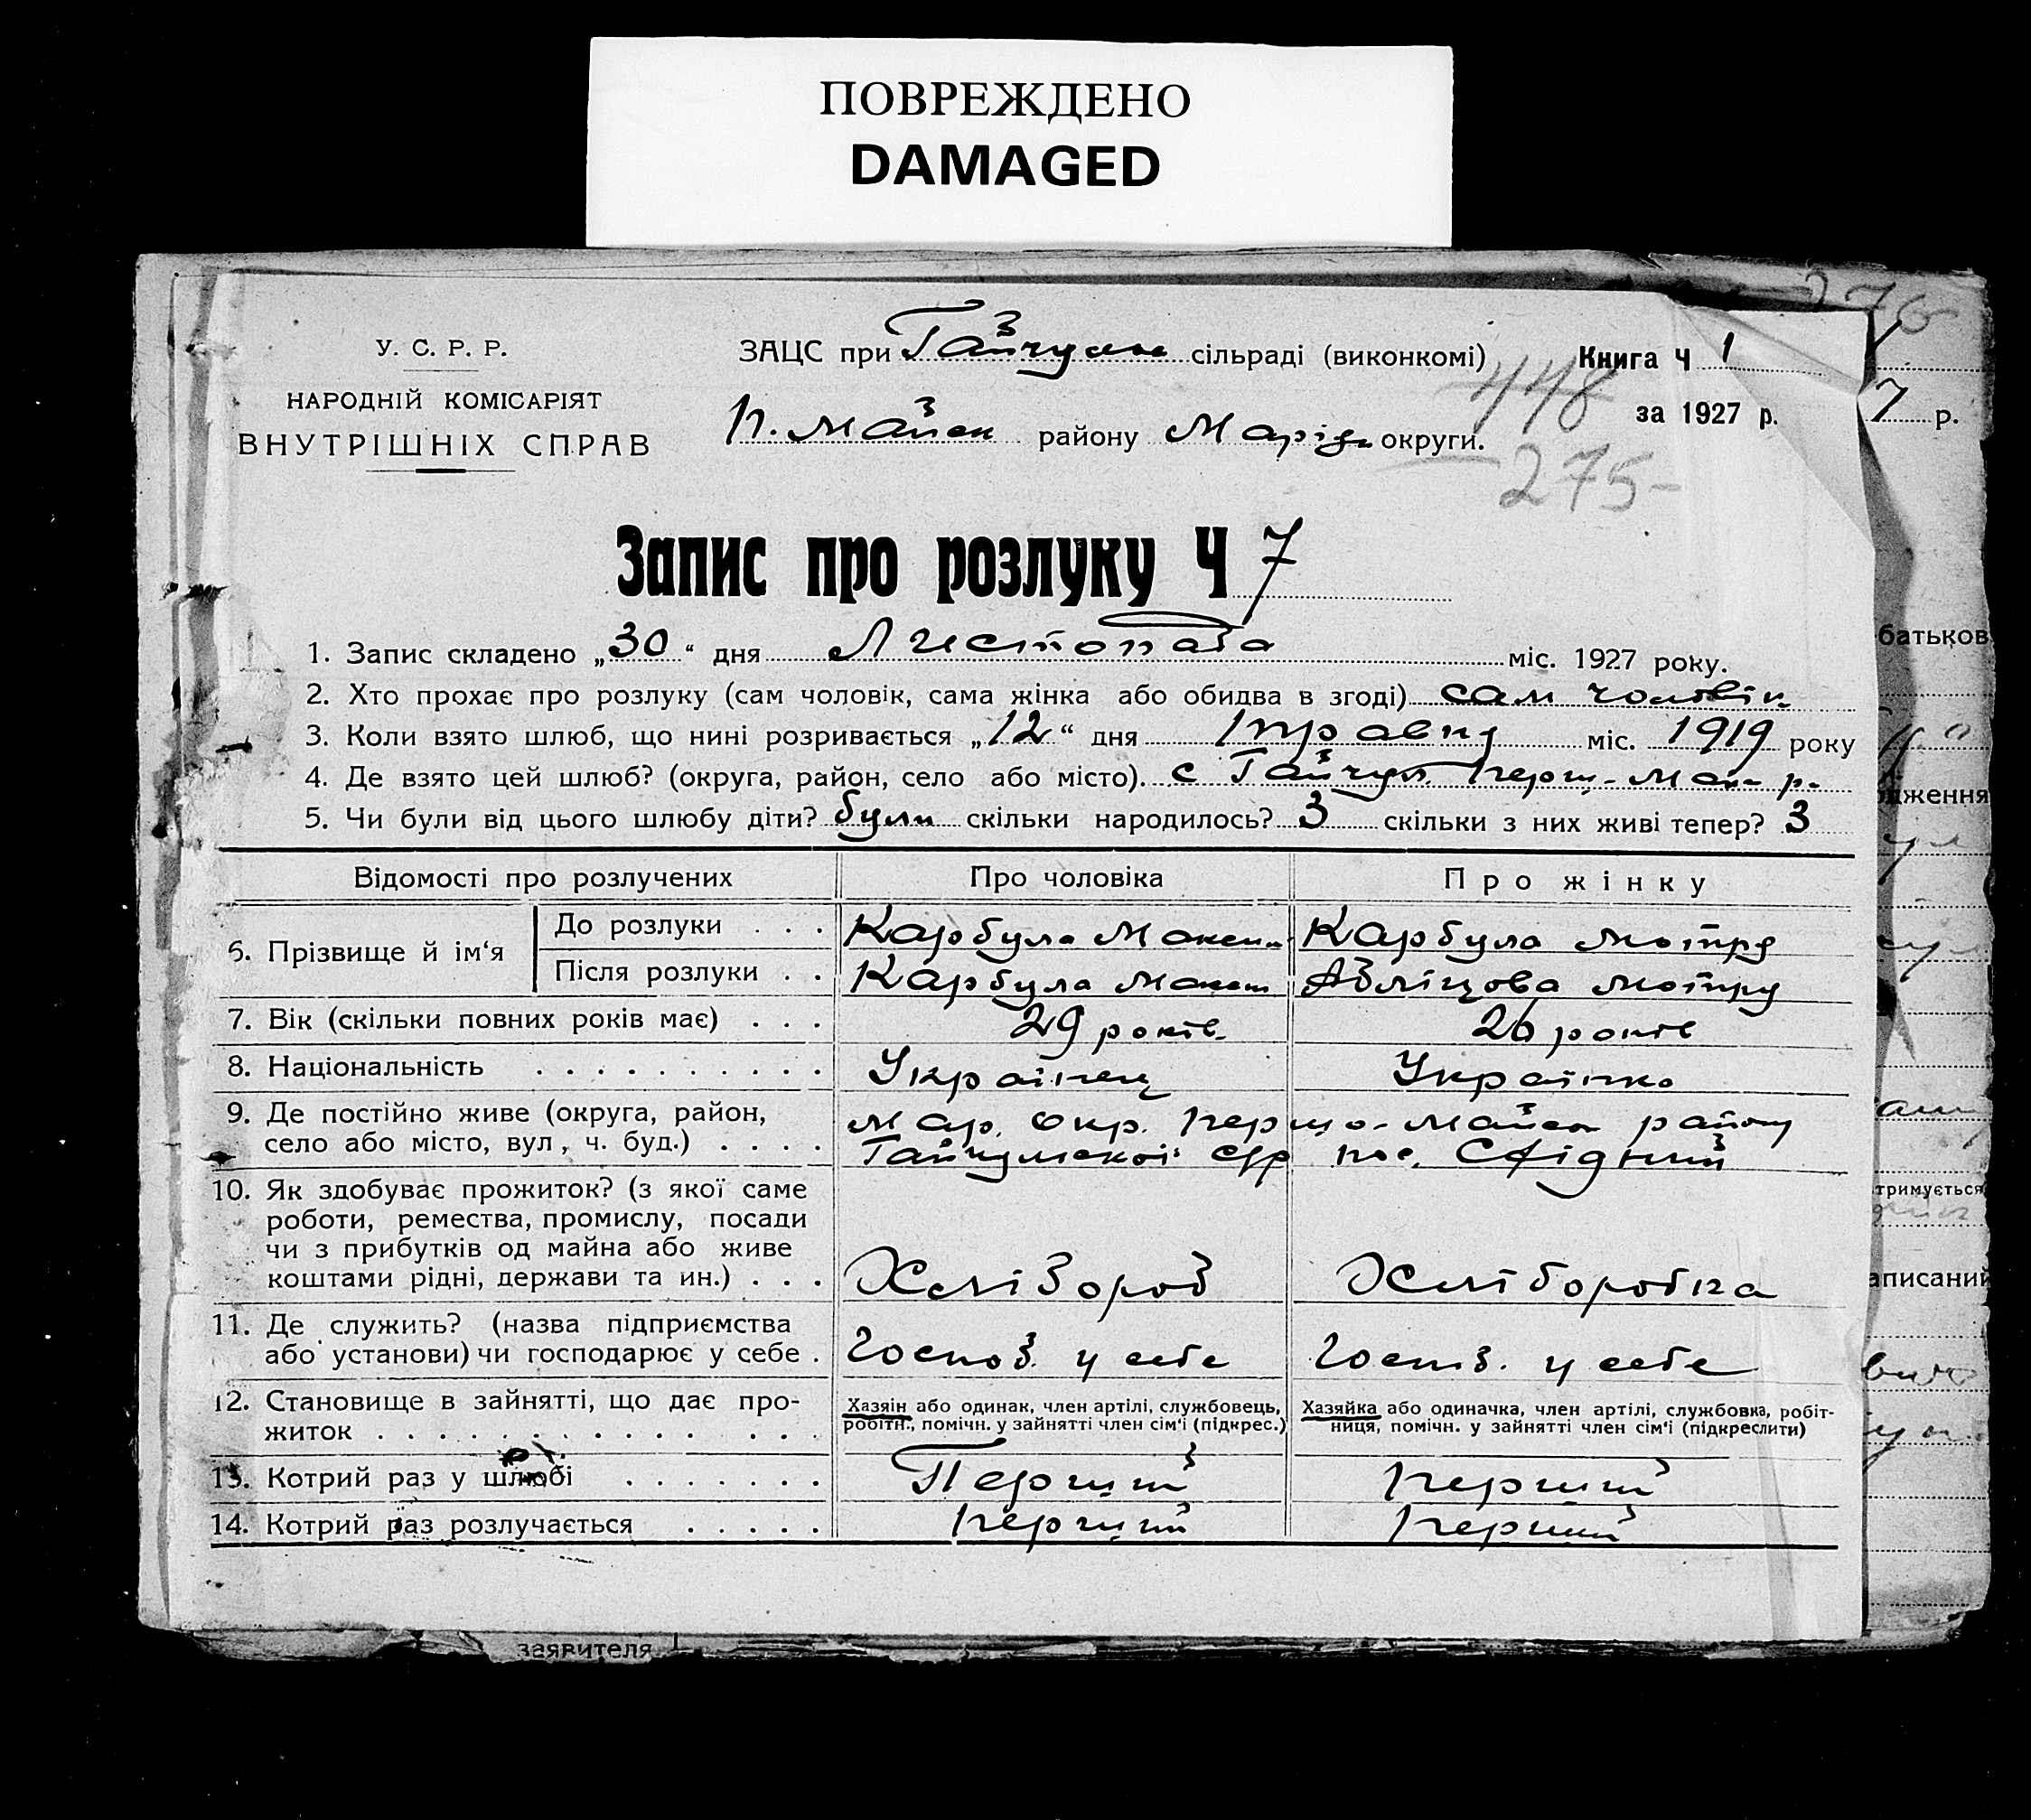 ПОВРЕЖДЕНО
DAMAGED
276
У. С. Р. Р.
НАРОДНІЙ КОМІСАРІЯТ
ВНУТРІШНІХ СПРАВ
ЗАЦС при Гайчулі сільраді (виконкомі)
П. Майськ району Маріуп округи.
Книга Ч 1
за 1927 р.
448
275-
7 р.
Запис про розлуку Ч 7
1. Запис складено „30“ дня Листопада міс. 1927 року.
2. Хто прохає про розлуку (сам чоловік, сама жінка або обидва в згоді) сам чоловік
3. Коли взято шлюб, що нині розривається „12“ дня травня міс. 1919 року
4. Де взято цей шлюб? (округа, район, село або місто). с Гайчул Перш-Май р.
5. Чи були від цього шлюбу діти? були скільки народилось? 3 скільки з них живі тепер? 3
Відомості про розлучених Про чоловіка Про жінку
6. Прізвище й ім‘я
До розлуки . . . Карбула Максим Карбула Мотря
Після розлуки . . Карбула Максим Абліцова Мотря
7. Вік (скільки повних років має) . . . 29 років 26 років
8. Національність . . . . . . . . . . Українец Українка
9. Де постійно живе (округа, район,
село або місто, вул, ч. буд.) . . . .
Мар. окр. Першо-Майськ району
Гайчульскоі с/р пос. Східний
10. Як здобуває прожиток? (з якої саме
роботи, ремества, промислу, посади
чи з прибутків од майна або живе
коштами рідні, держави та ин.) . . .
Хлібороб Хліборобка
11. Де служить? (назва підприємства
або установи) чи господарює у себе .
Господ. у себе Госпд. у себе
12. Становище в зайнятті, що дає про-
житок
Хазяін або одинак, член артілі, службовець,
робітн., помічн. у зайнятті член сім‘і (підкрес.)
Хазяйка або одиначка, член артілі, службовка, робіт-
ниця, помічн. у зайнятті член сім‘і (підкреслити)
13. Котрий раз у шлюбі . . . . . . . Перший перший
14. Котрий раз розлучається . . . . . перший перший
батьков
дження
тримується
аписаний
заявителя